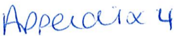 Appendix 4